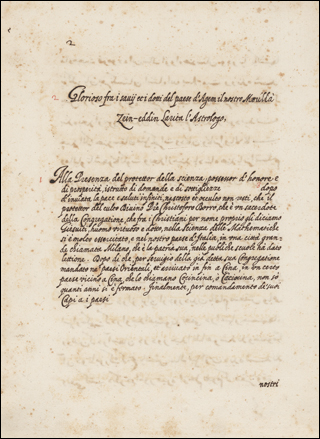 2
Glorioso fra i savij et i doni del paese d'Agem il nostro Mœulla
Zein-eddin Larita l'Astrologo.
Alla Presenza del protettor della scienza, possessor d'honore, e
di prosperità, istrutto di domande e di sottigliezze dopo
d'inviata la pace e saluti infiniti,
protettor del culto Padre Christoforo Borro, che è un sacerdote
della Congregatione, che fra i Christiani per nome proprio si diciamo
Giesuiti, huomo virtuoso e dotto, nella scienza delle Mathematiche
si è molto essercitato, e nel nostro paese d'Italia, in una città gran-
de chiamata Milano, che è la patria sua, nelle publiche scuole ha dato
lettione. Dopo di che, per servigio della già detta sua Congregatione
mandato ne' paesi Orientali, et arrivato in fin a Cina, in un certo
paese vicino a Cina, che lo chiamano Cocincina, o Cacciina, non sò
quanti anni si è fermato. Finalmente, per comandamento de' suoi
Capi a i paesi
nostri